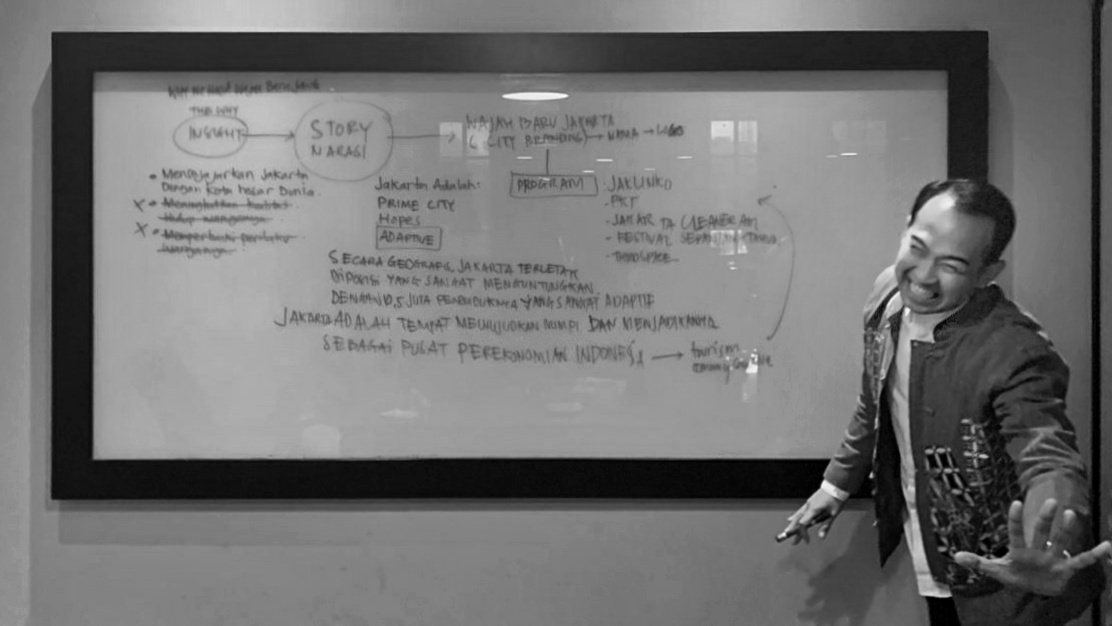 Why We Need Wajah Baru
THE WHY
INSIGHT
STORY
NARASI
WAJAH BARU JAKARTA
(CITY BRANDING) → NAMA → LOGO
• Mensejajarkan Jakarta
Dengan Kota besar Dunia.
x • Meningkatkan kualitas
hidup warganya.
x • Memperbaiki perilaku
warganya.
Jakarta Adalah:
PRIME CITY
Hopes
ADAPTIVE
PROGRAM
- JAKLINKO
- PKT
- FESTIVAL SEPANJANG TAHUN
SECARA GEOGRAFIS, JAKARTA TERLETAK
DIPOSISI YANG SANGAT MENGUNTUNGKAN
DENGAN 10,5 JUTA PENDUDUKNYA YANG SANGAT ADAPTIF
JAKARTA ADALAH TEMPAT MEWUJUDKAN MIMPI DAN MENJADIKANNYA
SEBAGAI PUSAT PEREKONOMIAN INDONESIA → tourism